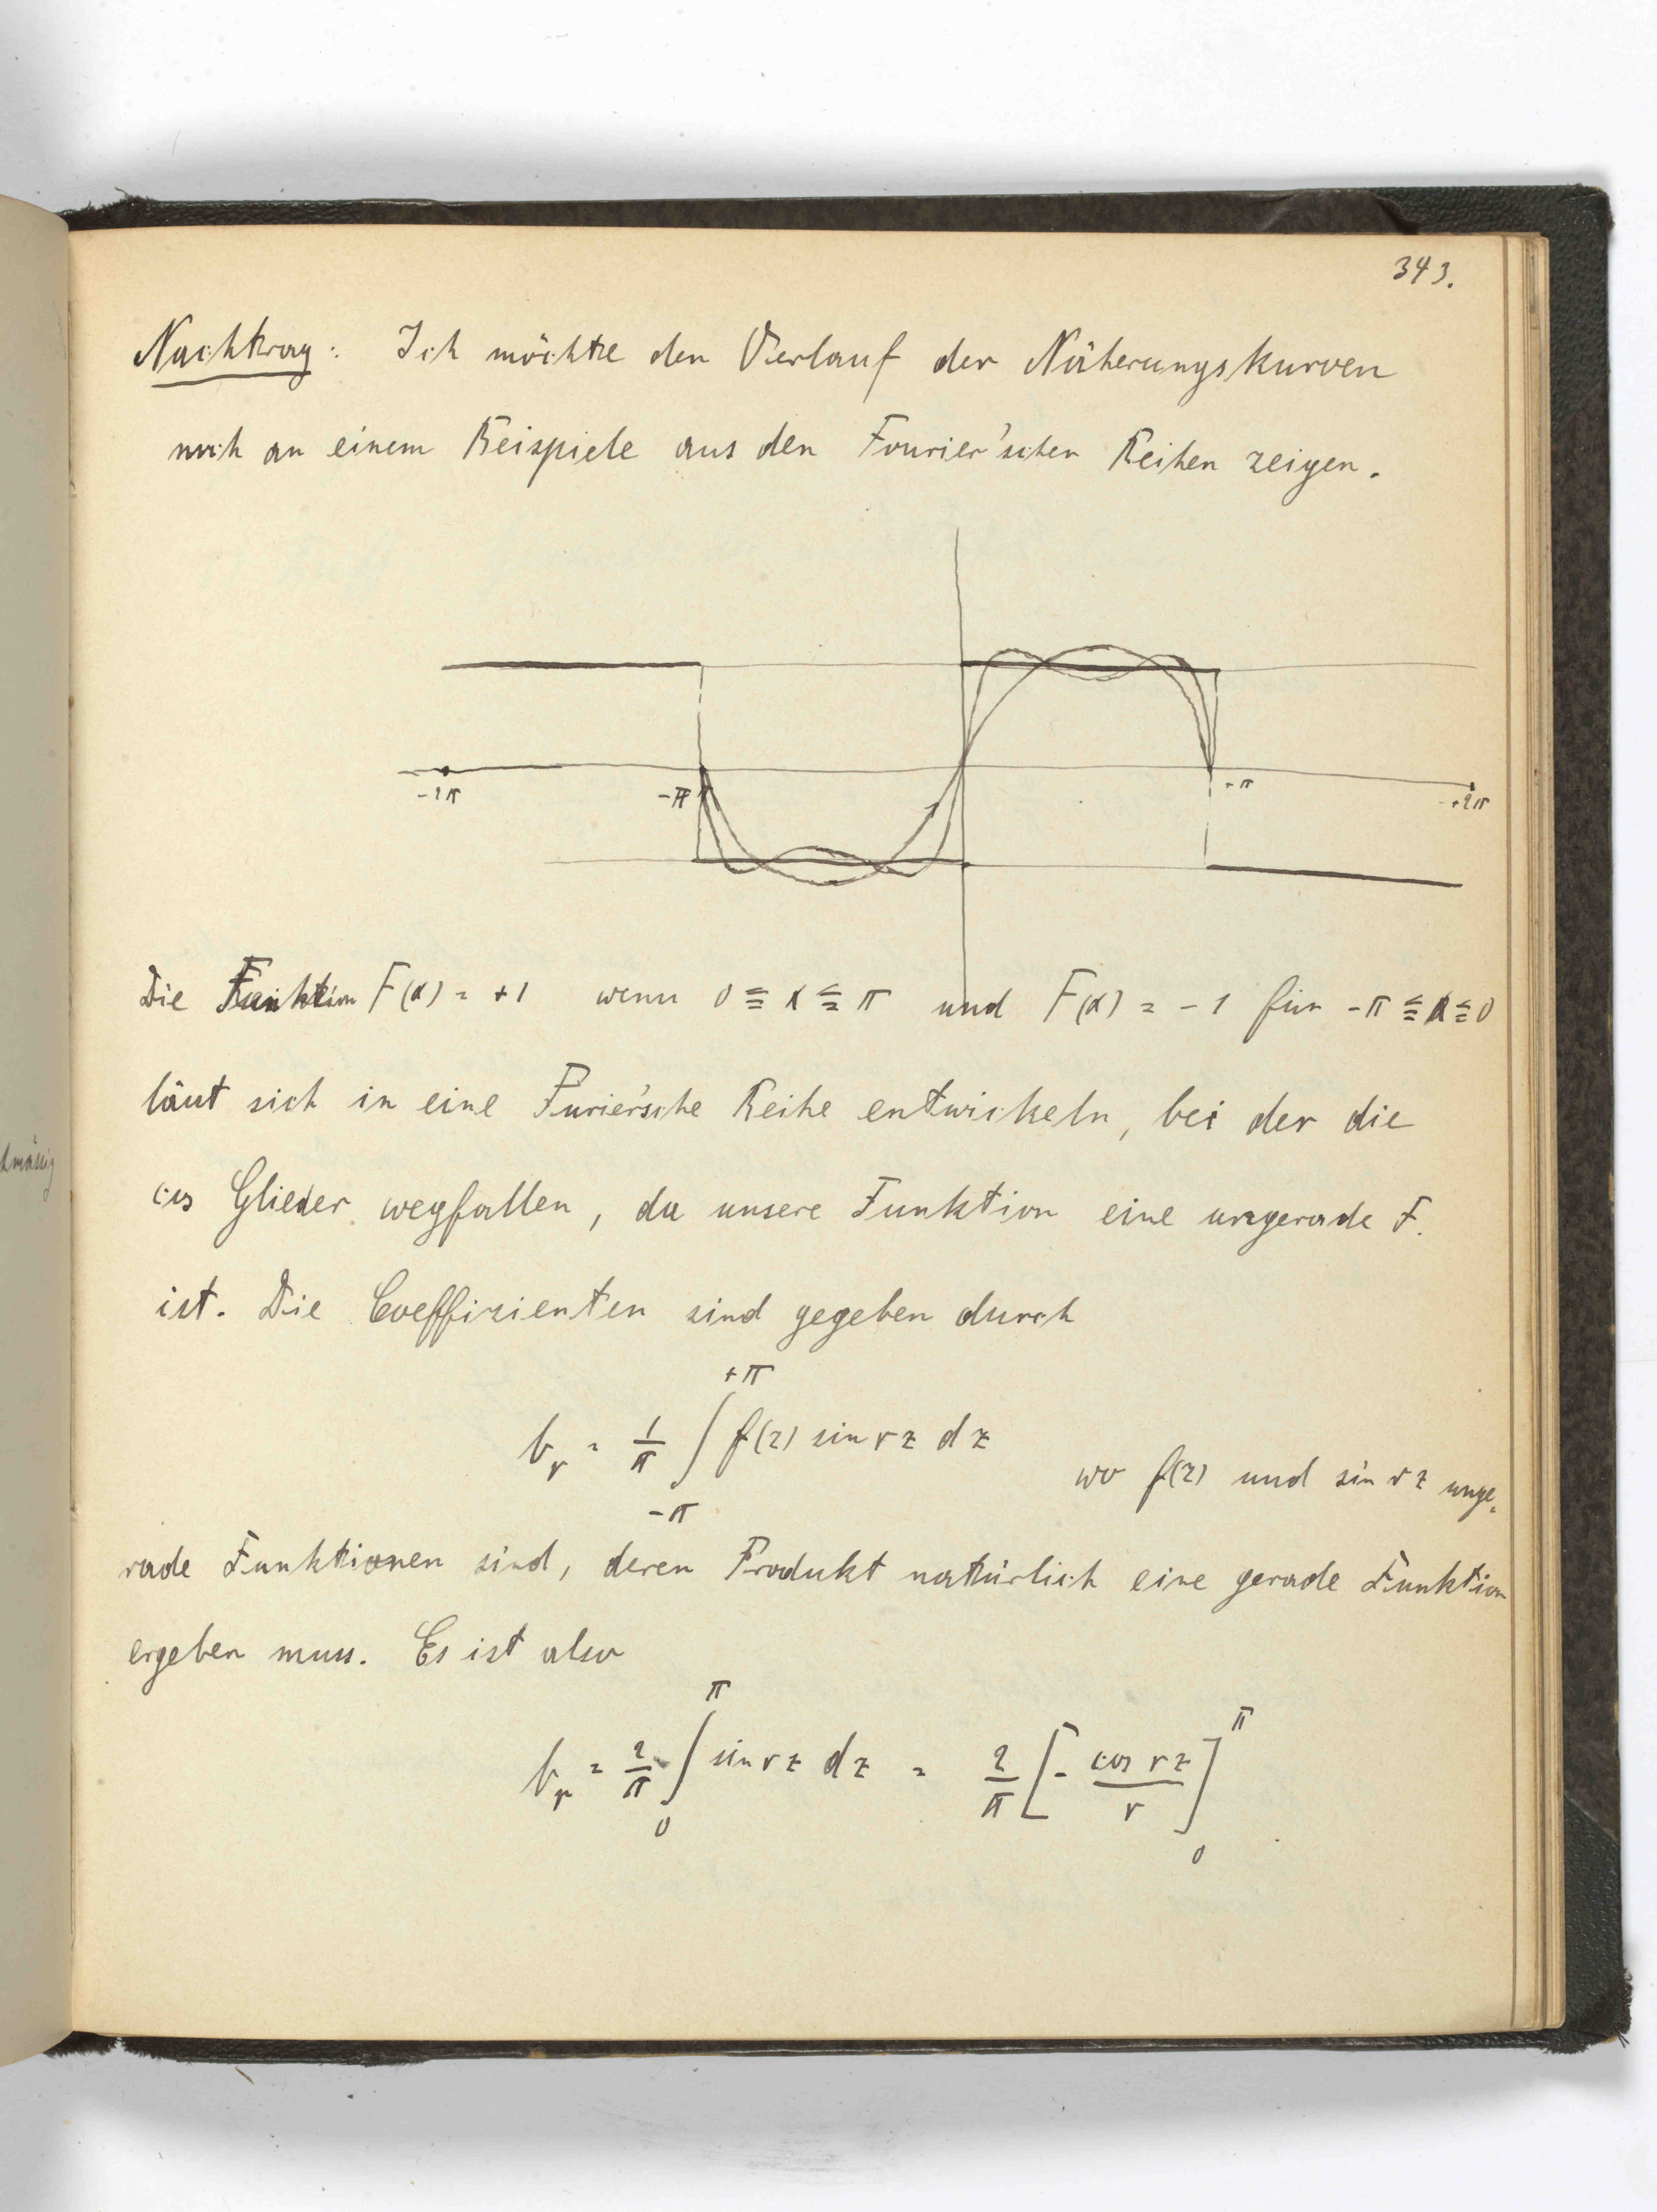 343.
Nachtrag: Ich möchte den Verlauf der Näherungskurven
noch an einem Beispiele aus den Fourier'schen Reihen zeigen.
-2π -π +π +2π
Die Funktion F(x) = +1 wenn 0 ≦ x ≦ π und F(x) = -1 für -π ≦ x ≦ 0
läut sich in eine Furier'sche Reihe entwickeln, bei der die
cos Glieder wegfallen, da unsere Funktion eine ungerade F.
ist. Die Coeffizienten sind gegeben durch
b_r = 1/π ∫_{-π}^{+π} f(z) sin rz dz wo f(z) und sin rz unge-
rade Funktionen sind, deren Produkt natürlich eine gerade Funktion
ergeben muss. Es ist also
b_r = 2/π ∫_0^π sin rz dz = 2/π [- cos rz / r]_0^π